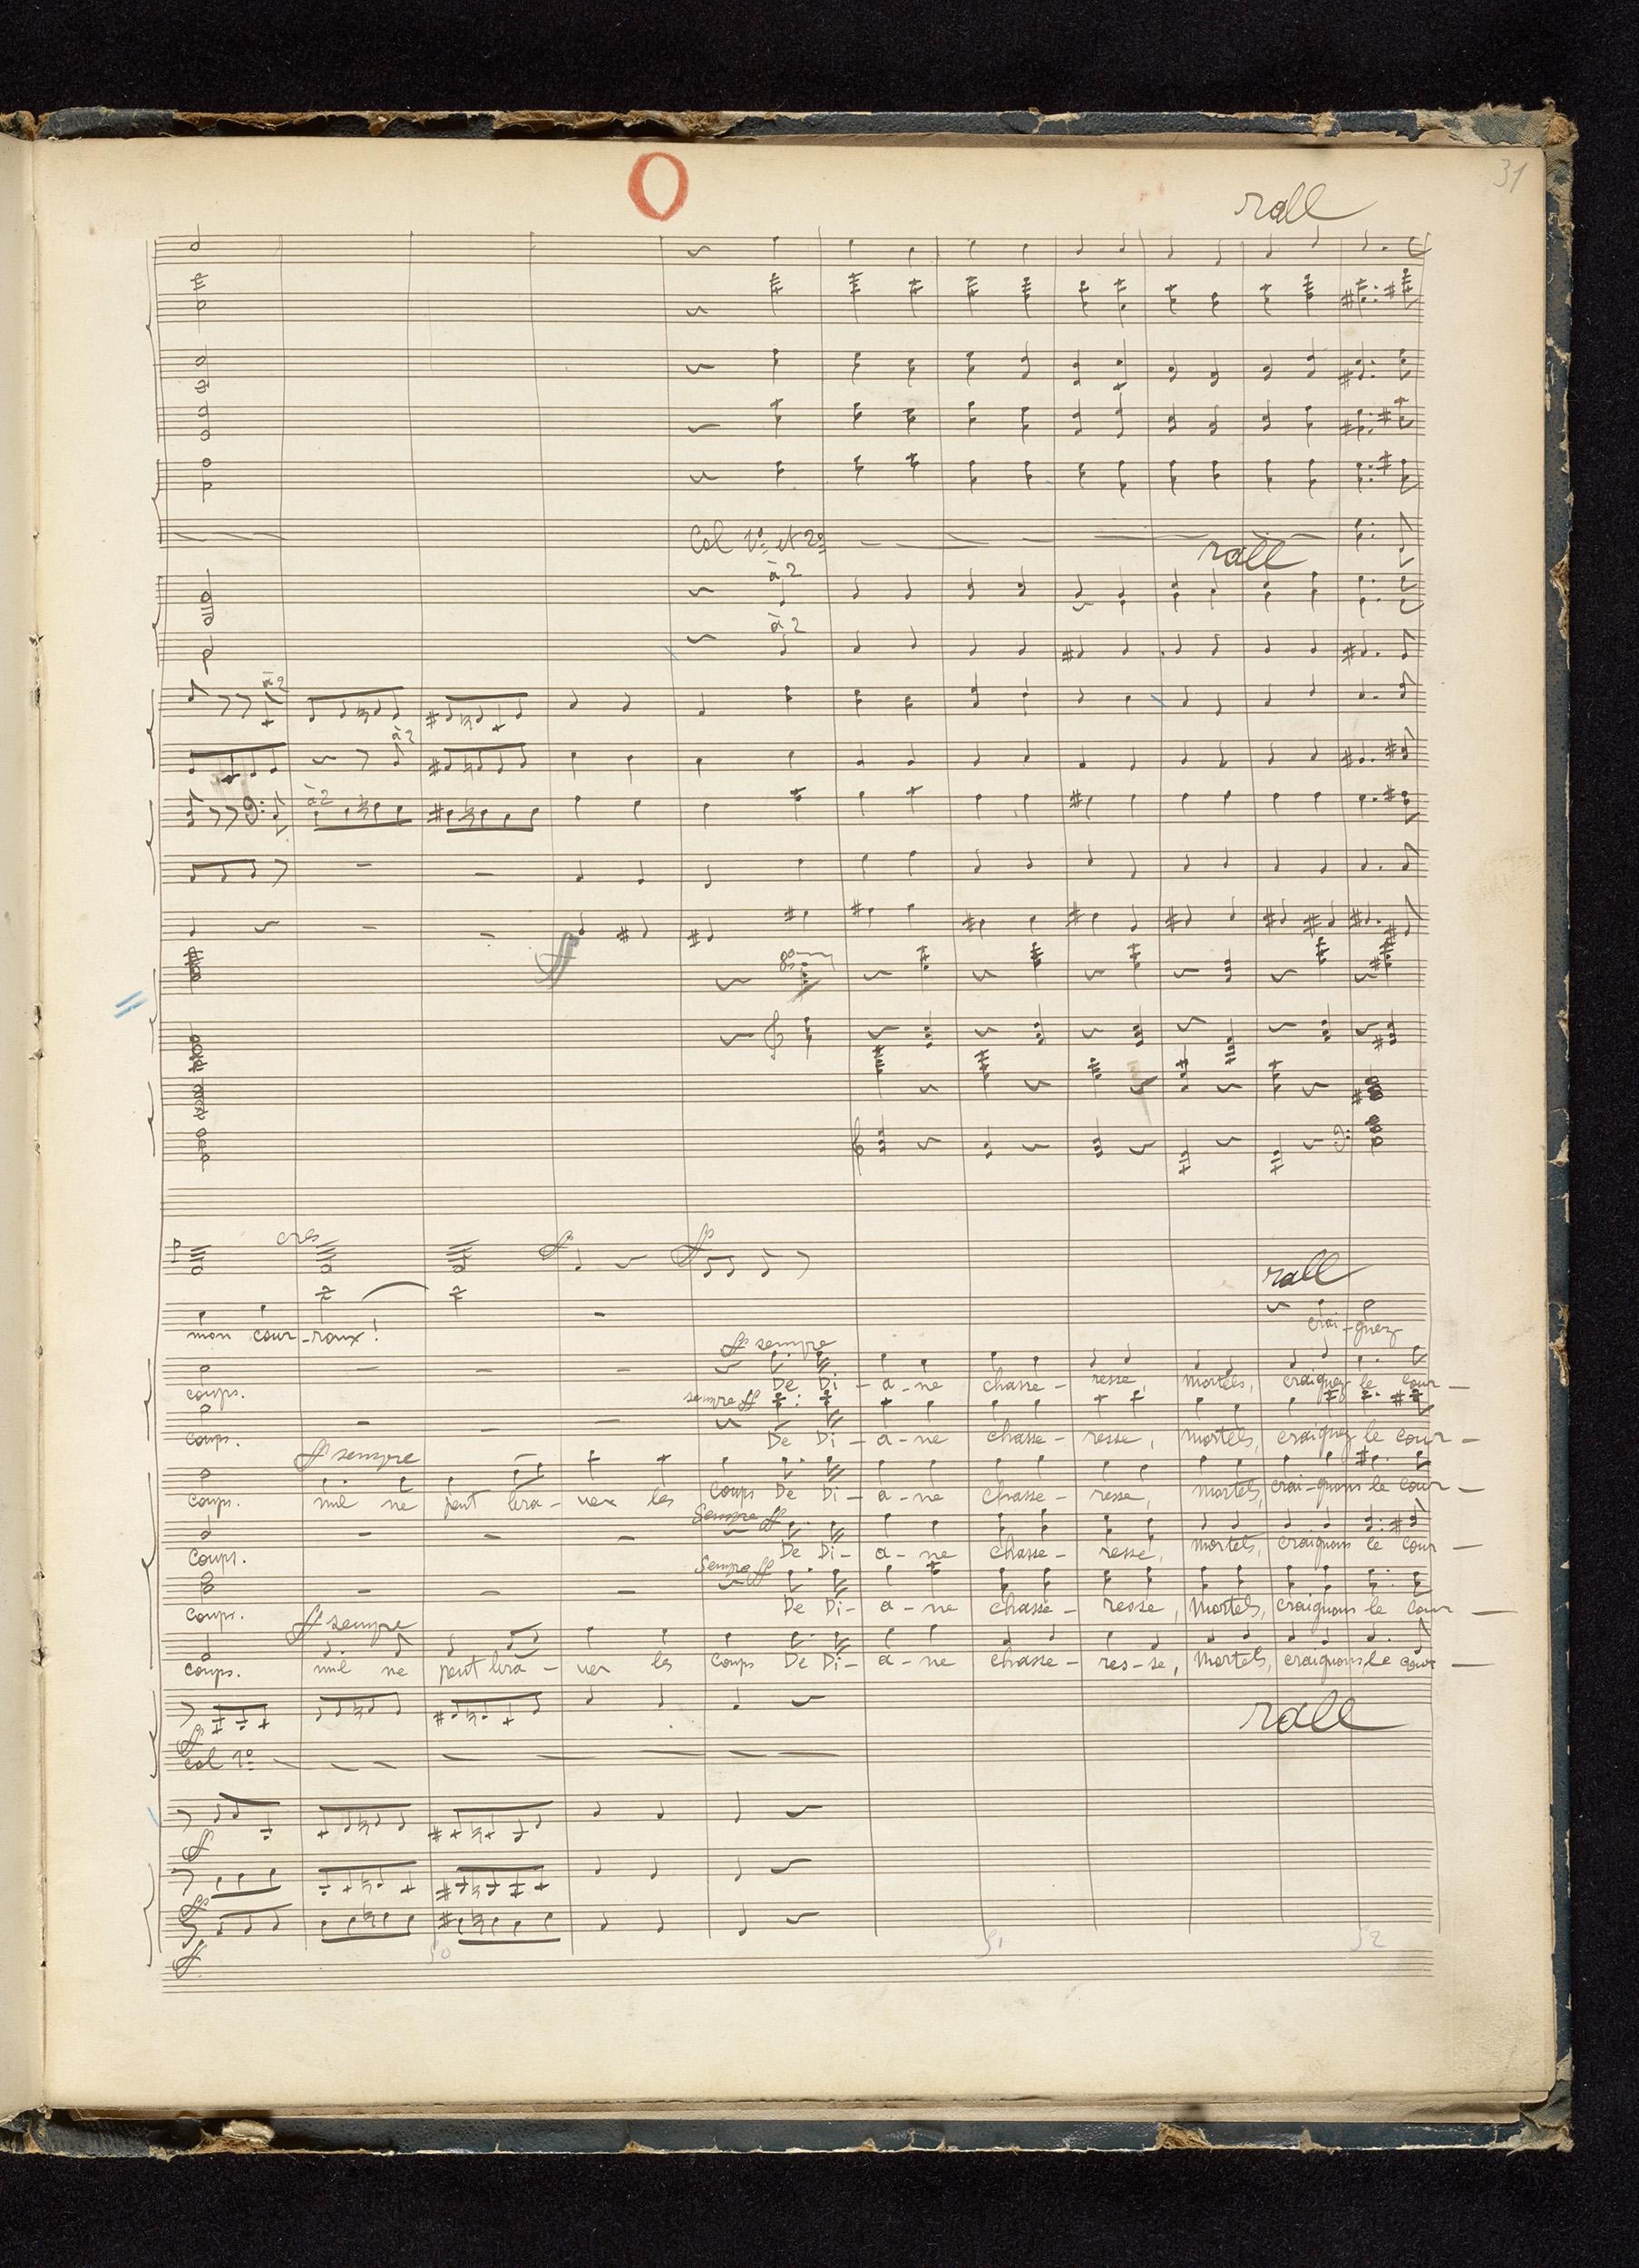 31
O
rall
Col 1º et 2º
rall
à 2
à 2
à 2
à 2
à 2
ff
8ª
p cres ff ff
rall
mon cour-roux! crai-gnez
ff sempre
coups. De Di-a-ne chasse-resse, mortels, craignez le cour-
sempre ff
coups. De Di-a-ne chasse-resse, mortels, craignez le cour-
ff sempre
coups. nul ne peut bra-ver les coups De Di-a-ne chasse-resse, mortels, crai-gnons le cour-
Sempre ff
coups. De Di-a-ne chasse-resse, mortels, craignons le cour-
Sempre ff
coups. De Di-a-ne chasse-resse, mortels, craignons le cour-
ff sempre
coups. nul ne peut bra-ver les coups De Di-a-ne chasse-res-se, mortels, craignons le cour-
rall
ff
col 1º
ff
ff
ff
50 51 52